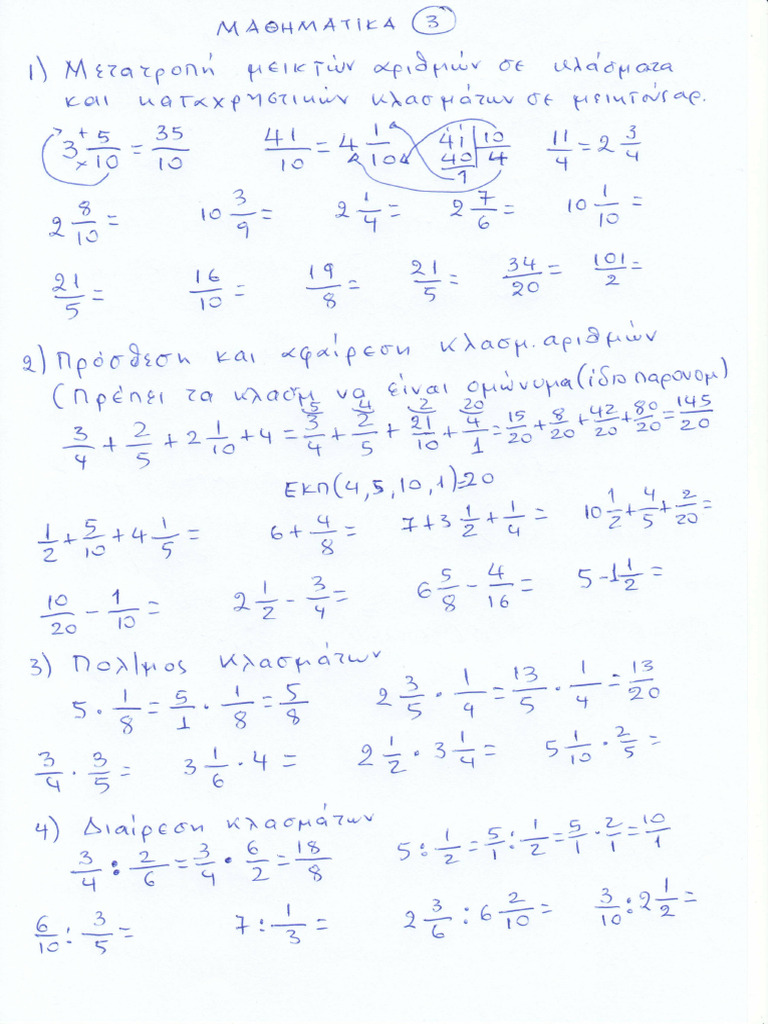 ΜΑΘΗΜΑΤΙΚΑ 3
1) Μετατροπή μεικτών αριθμών σε κλάσματα
και καταχρηστικών κλασμάτων σε μεικτούς αρ.
3 + 5/×10 = 35/10   41/10 = 4 1/10   41 | 10   11/4 = 2 3/4
40 | 4
1
2 8/10 =   10 3/9 =   2 1/4 =   2 7/6 =   10 1/10 =
21/5 =   16/10 =   19/8 =   21/5 =   34/20 =   101/2 =
2) Πρόσθεση και αφαίρεση κλασμ. αριθμών
(Πρέπει τα κλασμ να είναι ομώνυμα (ίδιο παρονομ)
5 4 2 20
3/4 + 2/5 + 2 1/10 + 4 = 3/4 + 2/5 + 21/10 + 4/1 = 15/20 + 8/20 + 42/20 + 80/20 = 145/20
ΕΚΠ(4,5,10,1)=20
1/2 + 5/10 + 4 1/5 =   6 + 4/8 =   7 + 3 1/2 + 1/4 =   10 1/2 + 4/5 + 2/20 =
10/20 - 1/10 =   2 1/2 - 3/4 =   6 5/8 - 4/16 =   5 - 1 1/2 =
3) Πολ/μος κλασμάτων
5 · 1/8 = 5/1 · 1/8 = 5/8   2 3/5 · 1/4 = 13/5 · 1/4 = 13/20
3/4 · 3/5 =   3 1/6 · 4 =   2 1/2 · 3 1/4 =   5 1/10 · 2/5 =
4) Διαίρεση κλασμάτων
3/4 : 2/6 = 3/4 · 6/2 = 18/8   5 : 1/2 = 5/1 : 1/2 = 5/1 · 2/1 = 10/1
6/10 : 3/5 =   7 : 1/3 =   2 3/6 : 6 2/10 =   3/10 : 2 1/2 =